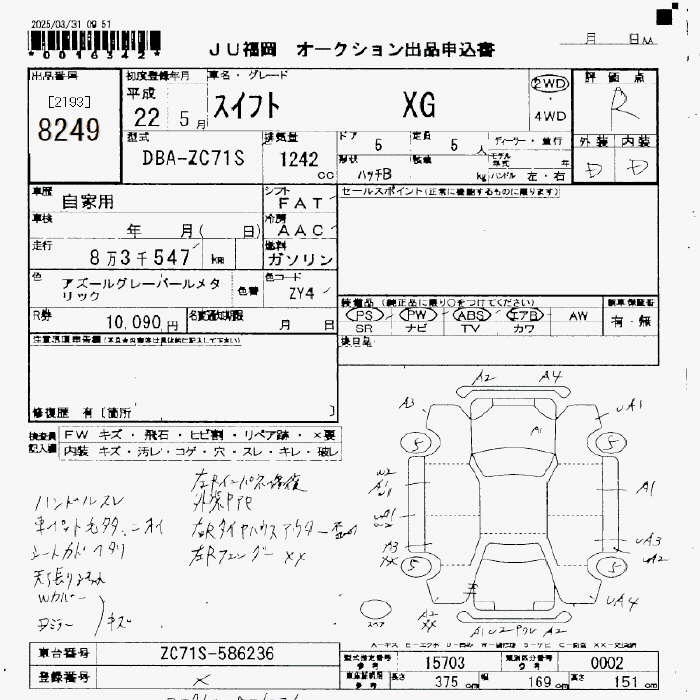 2025/03/31 09 51
*0016342*
JU福岡 オークション出品申込書
月 日
出品番号
[2193]
8249
初度登録年月
平成
22 5 月
車名・グレード
スイフト XG
2WD
・
4WD
評価点
R
外装 内装
D D
型式
DBA-ZC71S
排気量
1242
cc
ドア
5
定員
5 人
ディーラー・並行
モデル
年式 年
形状
ハッチB
積載
kg
ハンドル 左・右
車歴
自家用
シフト
FAT
セールスポイント(正常に機能するものに限ります)
車検
年 月( 日)
冷房
AAC
走行
8万3千547 km
燃料
ガソリン
色
アズールグレーパールメタ
リック
色替
色コード
ZY4
装備品(純正品に限り○をつけてください)
PS PW ABS エアB AW
SR ナビ TV カワ
新車保証書
有・無
R券
10,090 円
名変通知期限
月 日
後日品
注意事項申告欄
修復歴 有〔箇所 〕
検査員
記入欄
FW キズ・飛石・ヒビ割・リペア跡・×要
内装 キズ・汚レ・コゲ・穴・スレ・キレ・破レ
ハンドルスレ
シートカビ ヘタリ
Wカバー
ドアミラー
キズ
左Rインパネ修復
左Rフェンダー XX
A2 A4
A3 UA1
A1
5 5
W2
A1
U1
A1
UA1
W2
A3
XX
UA3
UA2
5 5
A2
XX
UA4
スペア
A1 U2
A2
車台番号
ZC71S-586236
登録番号
型式指定番号
参考
15703
類別区分番号
参考
0002
車体証明用
参考
長さ
375 cm
幅
169 cm
高さ
151 cm